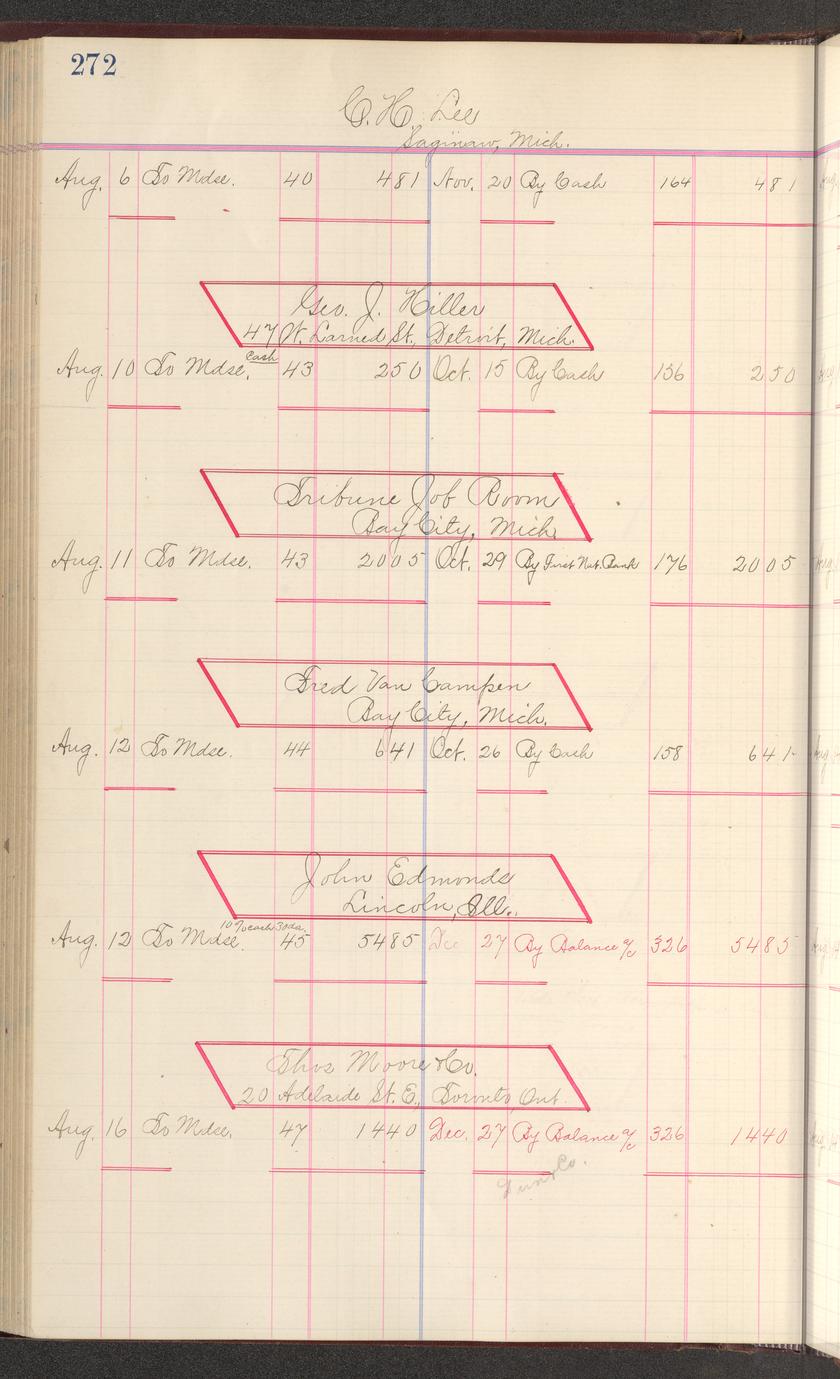 272
C. H. Lee
Saginaw, Mich.
Aug. 6 To Mdse. 40 481 Nov. 20 By Cash 164 481
Geo. J. Hiller
47 W. Larned St., Detroit, Mich.
cash
Aug. 10 To Mdse. 43 250 Oct. 15 By Cash 156 250
Tribune Job Room
Bay City, Mich.
Aug. 11 To Mdse. 43 2005 Oct. 29 By First Nat. Bank 176 2005
Fred Van Campen
Bay City, Mich.
Aug. 12 To Mdse. 44 641 Oct. 26 By Cash 158 641
John Edmonds
Lincoln, Ill.
10% cash 30 da.
Aug. 12 To Mdse. 45 5485 Dec 27 By Balance a/c 326 5485
Thos Moore & Co.
20 Adelaide St. E., Toronto, Ont.
Aug. 16 To Mdse. 47 1440 Dec. 27 By Balance a/c 326 1440
Dun & Co.